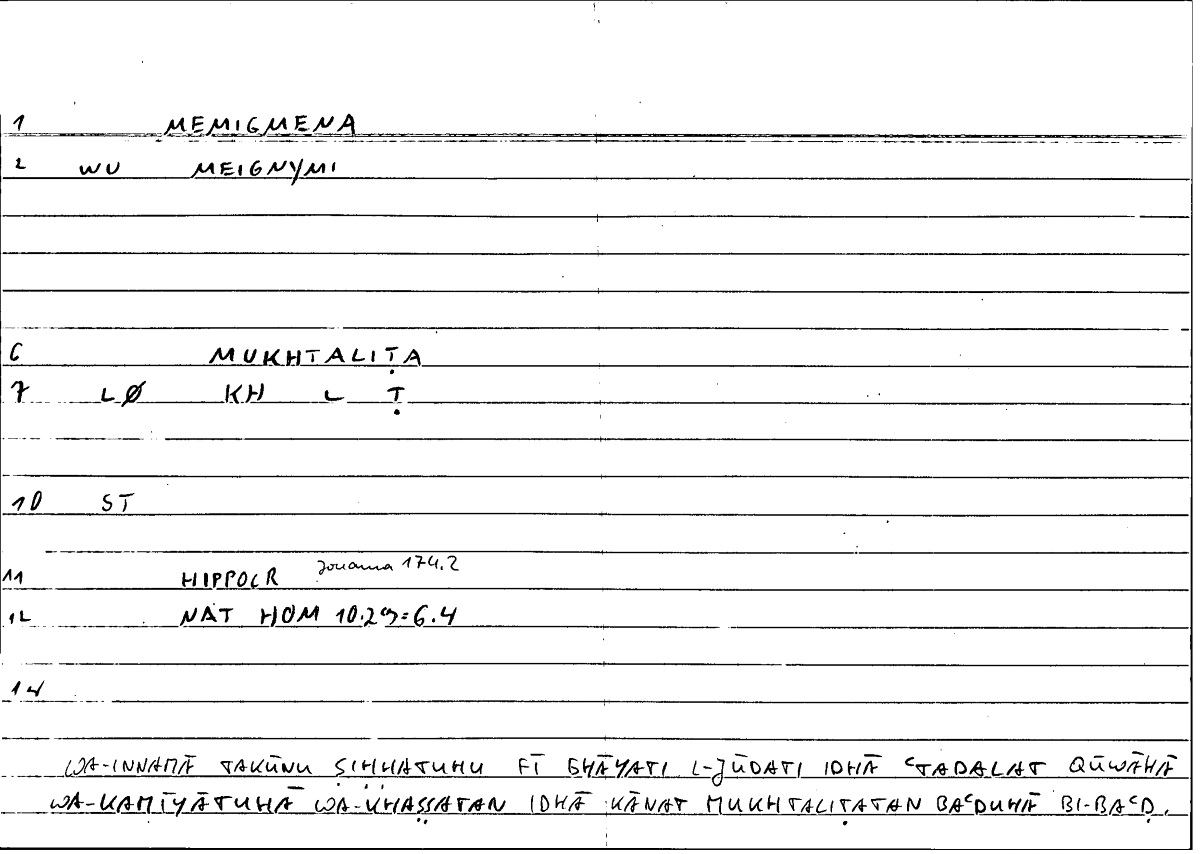 1 MEMIGMENA
2 WU MEIGNYMI
6 MUKHTALIṬA
7 LØ KH L Ṭ
10 ST
11 HIPPOCR Jouanna 174.2
12 NAT HOM 10.29=6.4
14
WA-INNAMĀ TAKŪNU ṢIḤḤATUHU FĪ GHĀYATI L-JŪDATI IDHĀ ʿTADALAT QŪWĀHĀ
WA-KAMĪYĀTUHĀ WA-KHAṢṢATAN IDHĀ KĀNAT MUKHTALIṬATAN BAʿḌUHĀ BI-BAʿḌ.